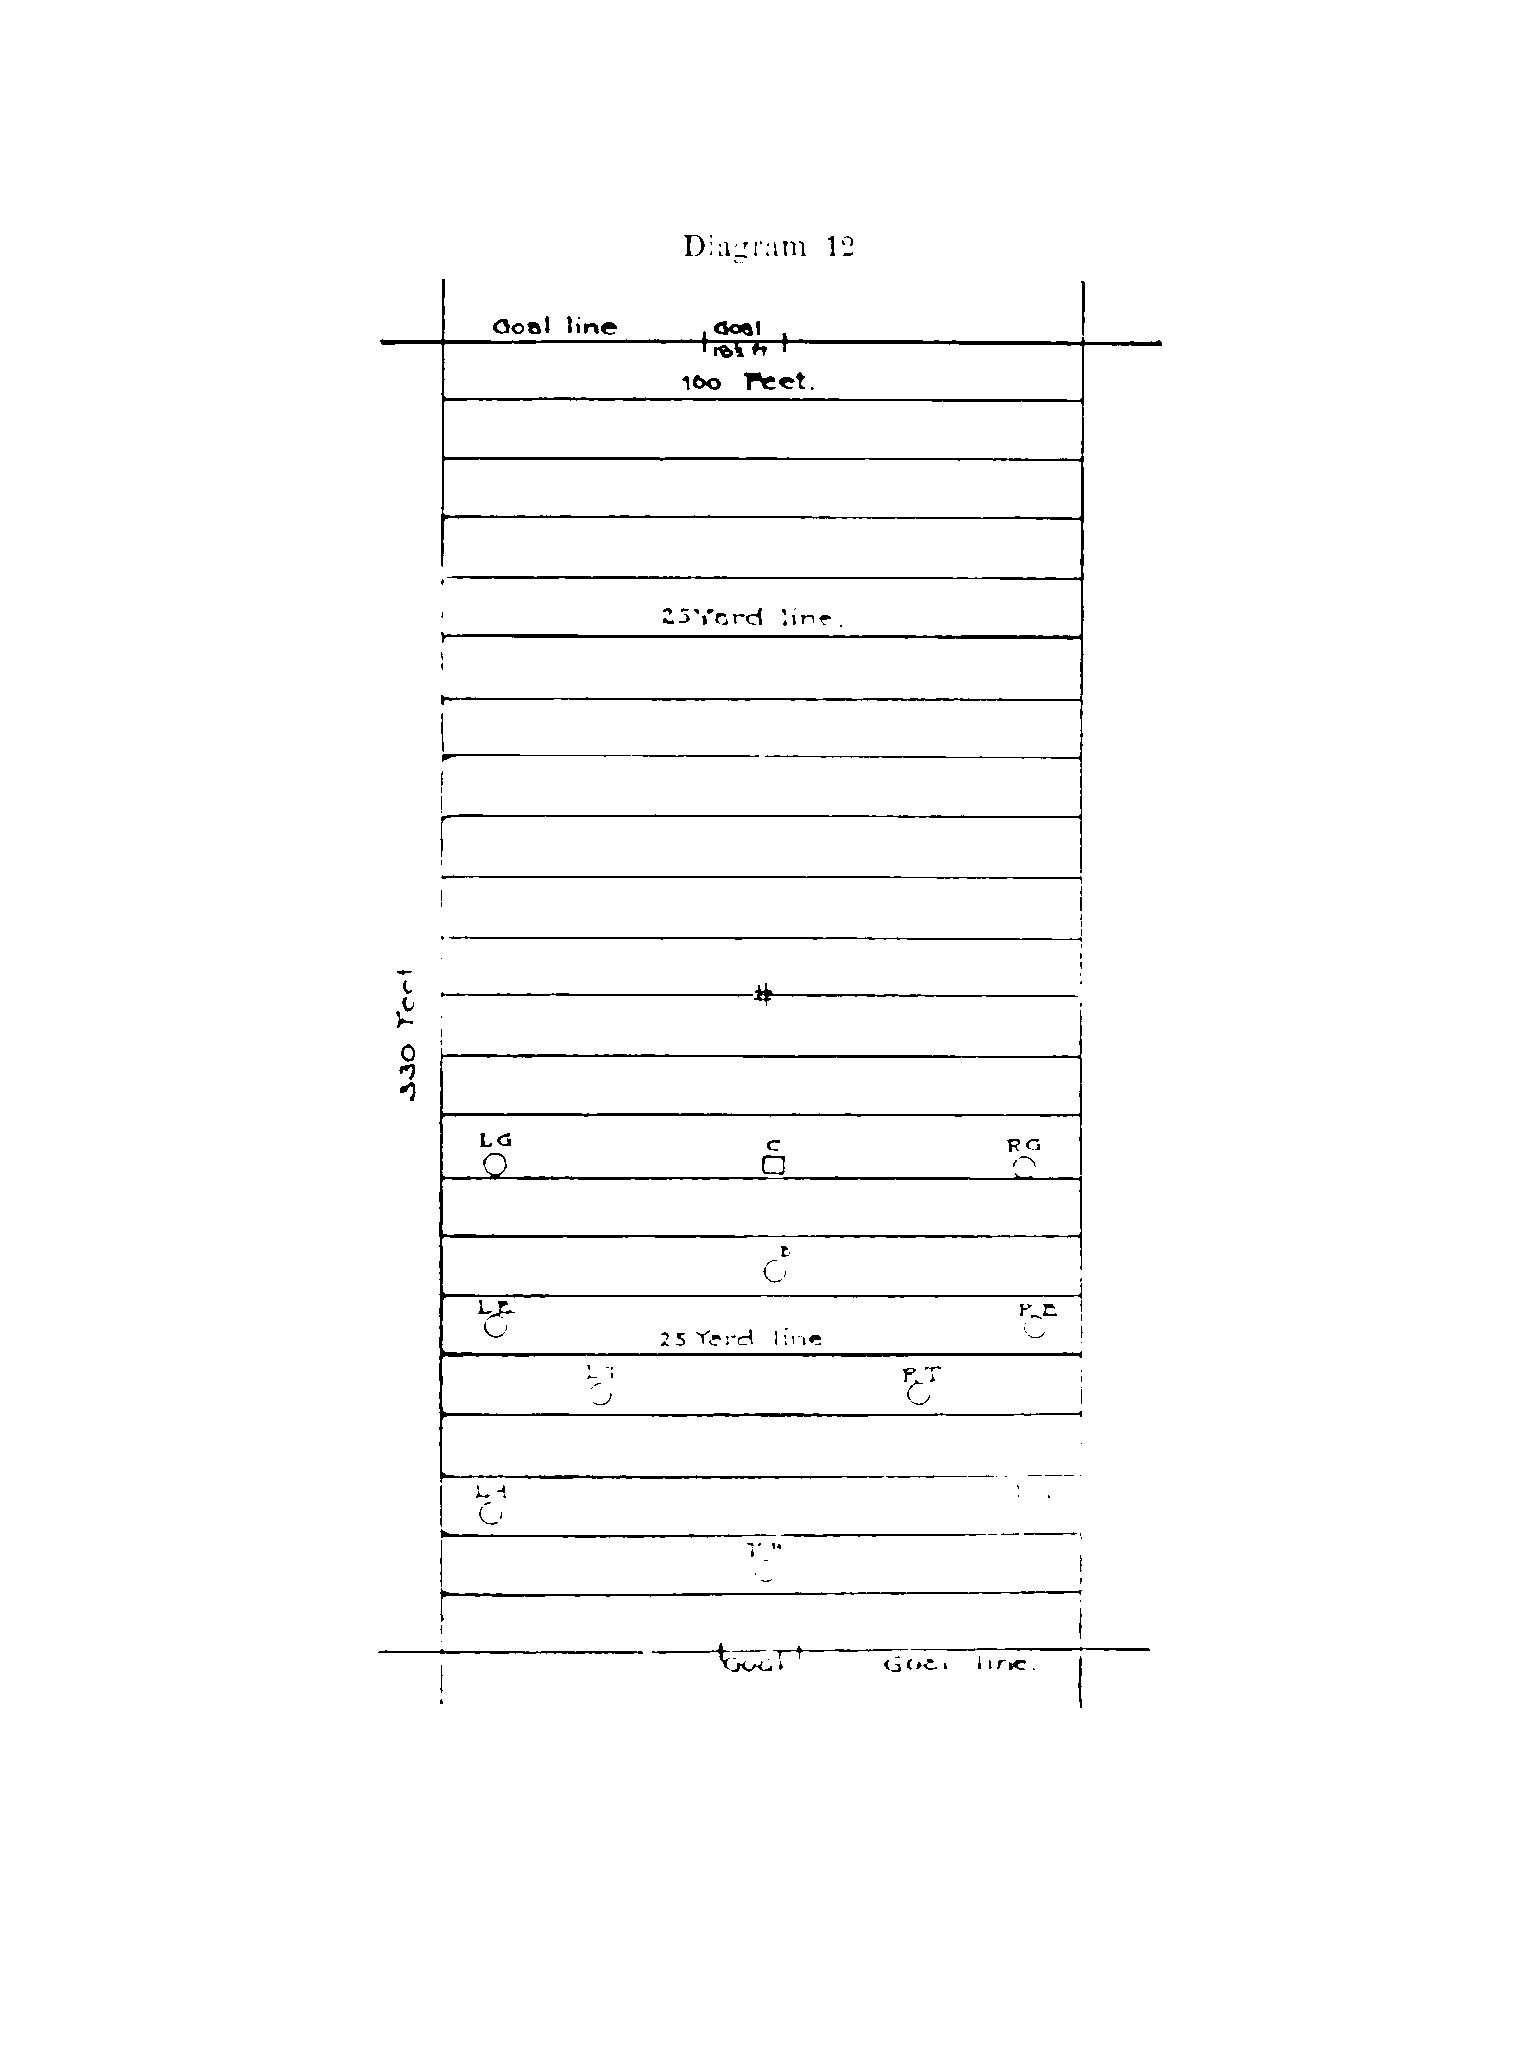 Diagram 12
Goal line
Goal
18½ ft
160 Feet.
25 Yard line.
330 Feet
LG
C
RG
LE
R E
25 Yard line
R T
Goal
Goal line.